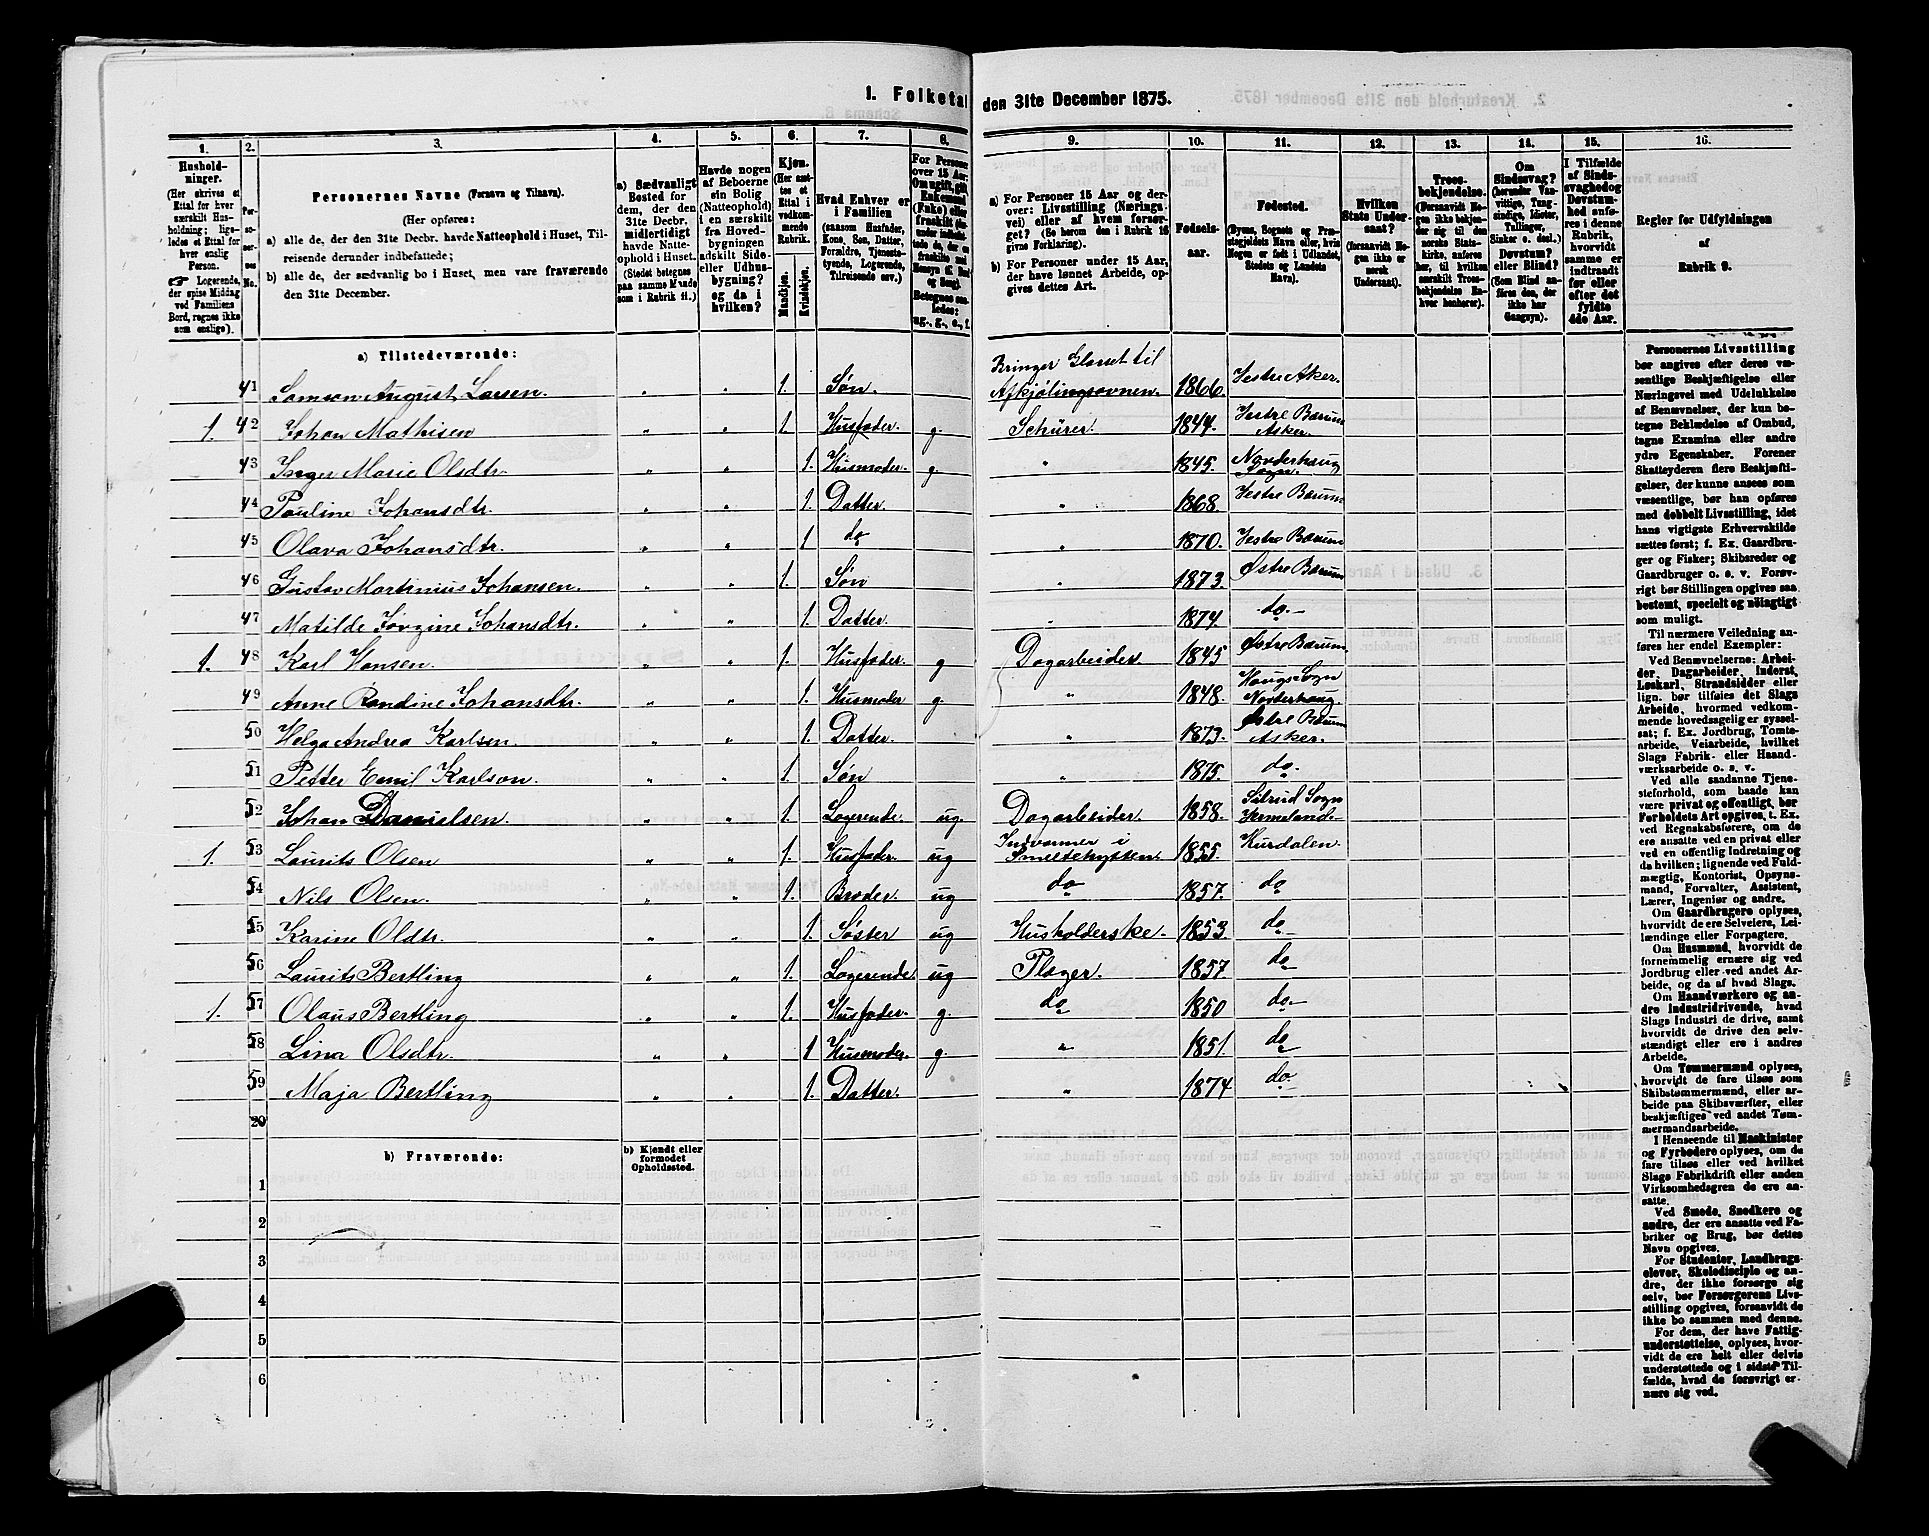 1. Folketal den 31te December 1875.
1. 2. 3. 4. 5. 6. 7. 8. 9. 10. 11. 12. 13. 14. 15. 16.
Hushold-
ninger.
(Her skrives et
Ettal for hver
særskilt Hus-
holdning; lige-
ledes et Ettal for
hver enslig
Person.
☞ Logerende,
der spise Middag
ved Familiens
Bord, regnes ikke
som enslige).
Per-
soner-
nes
No.
Personernes Navne (Fornavn og Tilnavn).
(Her opføres:
a) alle de, der den 31te Decbr. havde Natteophold i Huset, Til-
reisende derunder indbefattede;
b) alle de, der sædvanlig bo i Huset, men vare fraværende
den 31te December.
a) Sædvanligt
Bosted for
dem, der den
31te Decbr.
midlertidigt
havde Natte-
ophold i Huset.
(Stedet betegnes
paa samme Maade
som i Rubrik 11.)
Havde nogen
af Beboerne
sin Bolig
(Natteophold)
i en særskilt
fra Hoved-
bygningen
adskilt Side-
eller Udhus-
bygning?
og da i
hvilken?
Kjøn.
(Her sæt-
tes et
Ettal i
vedkom-
mende
Rubrik.
Mandkjøn.
Kvindekjøn.
Hvad Enhver er
i Familien
(saasom Husfader,
Kone, Søn, Datter,
Forældre, Tjeneste-
tyende, Logerende,
Tilreisende osv.)
For Personer
over 15 Aar:
Om ugift, gift,
Enkemand
(Enke) eller
fraskilt
Betegnes saa-
ledes:
ug., g., e., f.
a) For Personer 15 Aar og der-
over: Livsstilling (Nærings-
vei) eller af hvem forsør-
get? (Se herom den i Rubrik 16
givne Forklaring).
b) For Personer under 15 Aar,
der have lønnet Arbeide, op-
gives dettes Art.
Fødsels-
aar.
Fødested.
(Byens, Sognets og Præ-
stegjeldets Navn eller, hvis
Nogen er født i Udlandet,
Stedets og Landets
Navn).
Hvilken
Stats Under-
saat?
(forsaavidt No-
gen ikke er
norsk
Undersaat).
Troes-
bekjendelse.
(Forsaavidt No-
gen ikke bekjen-
der sig til den
norske Stats-
kirke, anføres
her, til hvilken
særskilt Troes-
bekjendelse En-
hver henhører).
Om
Sindssvag?
(herunder Van-
vittige, Tung-
sindige, Idioter,
Tullinger,
Sinker o. desl.)
Døvstum?
eller Blind?
(Som Blind an-
føres den, der
ikke har
Gangsyn).
I Tilfælde
af Sinds-
svaghed og
Døvstum-
hed anfø-
res i denne
Rubrik,
hvorvidt
samme er
indtraadt
før eller
efter det
fyldte
4de Aar.
Regler for Udfyldningen
af
Rubrik 9.
a) Tilstedeværende:
41 Samson August Larsen. " " 1. Søn Bringer Glasset til Afkjølingsovnen. 1866. Vestre Aker.
1. 42 Johan Mathisen " " 1. Husfader. g. Schürer. 1844. Vestre Bærum Asker.
43 Inger Marie Olsdtr. " " 1. Husmoder. g. " 1845. Norderhaug Sogn.
44 Pauline Johansdtr. " " 1. Datter. " 1868. Vestre Bærum
45 Olava Johansdtr. " " 1 do " 1870. Vestre Bærum
46 Gustav Martinius Johansen. " " 1. Søn " 1873. Østre Bærum
47 Matilde Jørgine Johansdtr. " " 1. Datter. " 1874. do.
1. 48 Karl Hansen. " " 1. Husfader. g Dagarbeider. 1845 Østre Bærum.
49 Anne Randine Johansdtr. " " 1. Husmoder g. " 1848. Haugs Sogn Norderhaug.
50 Helga Andrea Karlsen. " " 1. Datter. " 1873. Østre Bærum Asker.
51 Petter Emil Karlson. " " 1. Søn " 1875. do.
52 Johan Danielsen. " " 1. Logerende. ug. Dagarbeider. 1858. Sogn Vermeland.
1. 53 Laurits Olsen " " 1. Husfader. ug Indvarmer i Smeltehytten. 1855. Hurdalen.
54 Nils Olsen. " " 1. Broder. ug do 1857. do
55 Karine Oldtr. " " 1. Søster ug Husholderske. 1853. do
56 Laurits Bertling " " 1. Logerende. ug 1857. do
1. 57 Olaus Bertling " " 1. Husfader. g. do 1850 do.
58 Lina Olsdtr. " " 1 Husmoder. g. " 1851. do
59 Maja Bertling " " 1. Datter. " 1874 do.
20
b) Fraværende:
b) Kjendt eller
formodet
Opholdssted.
1
2
3
4
5
6
Personernes Livsstilling
bør angives efter deres væ-
sentlige Beskjæftigelse eller
Næringsvei med Udelukkelse
af Benævnelser, der kun be-
tegne Beklædelse af Ombud,
tagne Examina eller andre
ydre Egenskaber. Forener
Skatteyderen flere Beskjæfti-
gelser, der kunne ansees som
væsentlige, bør han opføres
med dobbelt Livsstilling, idet
hans vigtigste Erhvervskilde
sættes først; f. Ex. Gaardbru-
ger og Fisker; Skibsreder og
Gaardbruger o. s. v. Forøv-
rigt bør Stillingen opgives saa
bestemt, specielt og nøiagtigt
som muligt.
Til nærmere Veiledning an-
føres her endel Exempler:
Ved Benævnelserne: Arbei-
der, Dagarbeider, Inderst,
Løskarl, Strandsidder eller
lign. bør tilføies det Slags
Arbeide, hvormed vedkom-
mende hovedsagelig er syssel-
sat; f. Ex. Jordbrug, Tomte-
arbeide, Veiarbeide, hvilket
Slags Fabrik- eller Haand-
værksarbeide o. s. v.
Ved alle saadanne Tjene-
steforhold, som baade kan
være privat og offentligt, bør
Forholdets Art opgives, t. Ex.
ved Regnskabsførere, om de
ere ansatte ved en privat eller
ved en offentlig Indretning og
da hvilken; lignende ved Fuld-
mægtig, Kontorist, Opsyns-
mand, Forvalter, Assistent,
Lærer, Ingeniør og andre.
Om Gaardbrugere oplyses,
hvorvidt de ere Selveiere, Lei-
lændinge eller Forpagtere.
Om Husmænd, hvorvidt de
fornemmelig ernære sig ved
Jordbrug eller ved andet Ar-
beide, og da af hvad Slags.
Om Haandværkere og an-
dre Industridrivende, hvad
Slags Industri de drive, samt
hvorvidt de drive den selv-
stændigt eller ere i andres
Arbeide.
Om Tømmermænd oplyses,
hvorvidt de fare tilsøs som
Skibstømmermænd, eller ar-
beide paa Skibsværfter, eller
beskjæftiges ved andet Tøm-
mermandsarbeide.
I Henseende til Maskinister
og Fyrbødere oplyses, om de
fare tilsøs eller ved hvilket
Slags Fabrikdrift eller anden
Virksomhedsgren de ere an-
satte.
Ved Smede, Snedkere og
andre, der ere ansatte ved Fa-
briker og Brug, bør dettes
Navn opgives.
For Studenter, Landbrugs-
elever, Skoledisciple og an-
dre, der ikke forsørge sig
selv, bør Forsørgerens Livs-
stilling opgives, forsaavidt de
ikke bo sammen med denne.
For dem, der have Fattig-
understøttelse, oplyses, hvor-
vidt de ere helt eller delvis
understøttede og i sidste Til-
fælde, hvad de forøvrigt er-
nære sig ved.